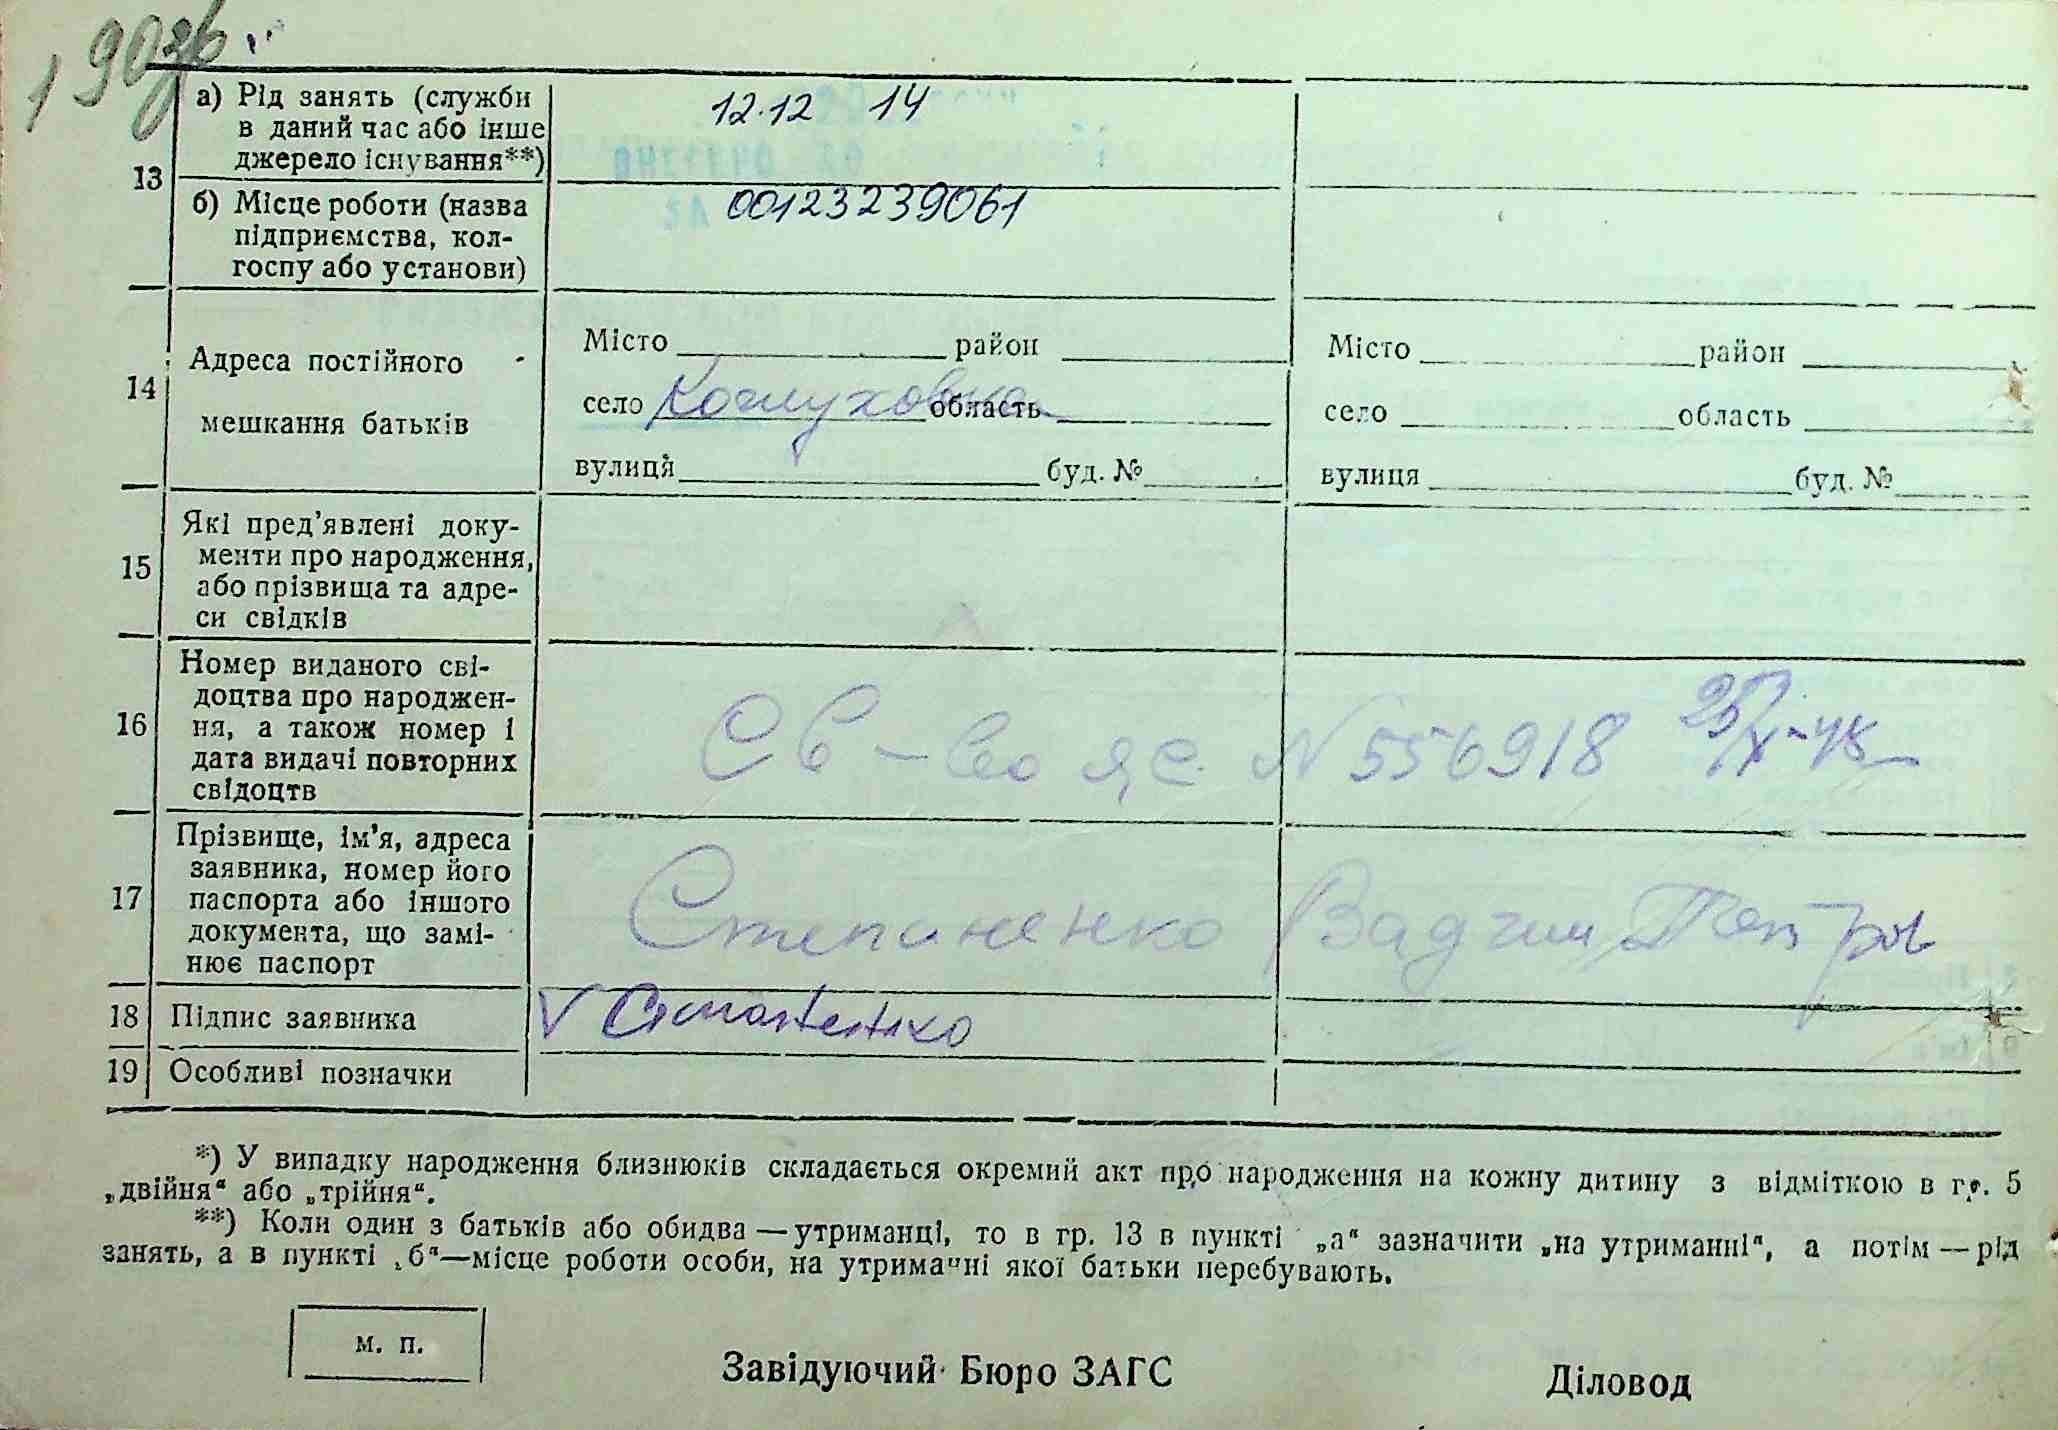 а) Рід занять (служби
в даний час або інше
джерело існування**)
12.12 14
13
б) Місце роботи (назва
підприємства, кол-
госпу або установи)
00123239061
14
Адреса постійного
мешкання батьків
Місто район
село область
вулиця буд. №
Місто район
село область
вулиця буд. №
15
Які пред’явлені доку-
менти про народження,
або прізвища та адре-
си свідків
16
Номер виданого сві-
доцтва про народжен-
ня, а також номер і
дата видачі повторних
свідоцтв
Св-во яс. N 556918
17
Прізвище, ім’я, адреса
заявника, номер його
паспорта або іншого
документа, що замі-
нює паспорт
Степаненко Вадим Петров
18 Підпис заявника
V Степаненко
19 Особливі позначки
*) У випадку народження близнюків складається окремий акт про народження на кожну дитину з відміткою в гр. 5
„двійня“ або „трійня“.
**) Коли один з батьків або обидва — утриманці, то в гр. 13 в пункті „а“ зазначити „на утриманні“, а потім — рід
занять, а в пункті „б“—місце роботи особи, на утриманні якої батьки перебувають.
м. п.
Завідуючий Бюро ЗАГС
Діловод